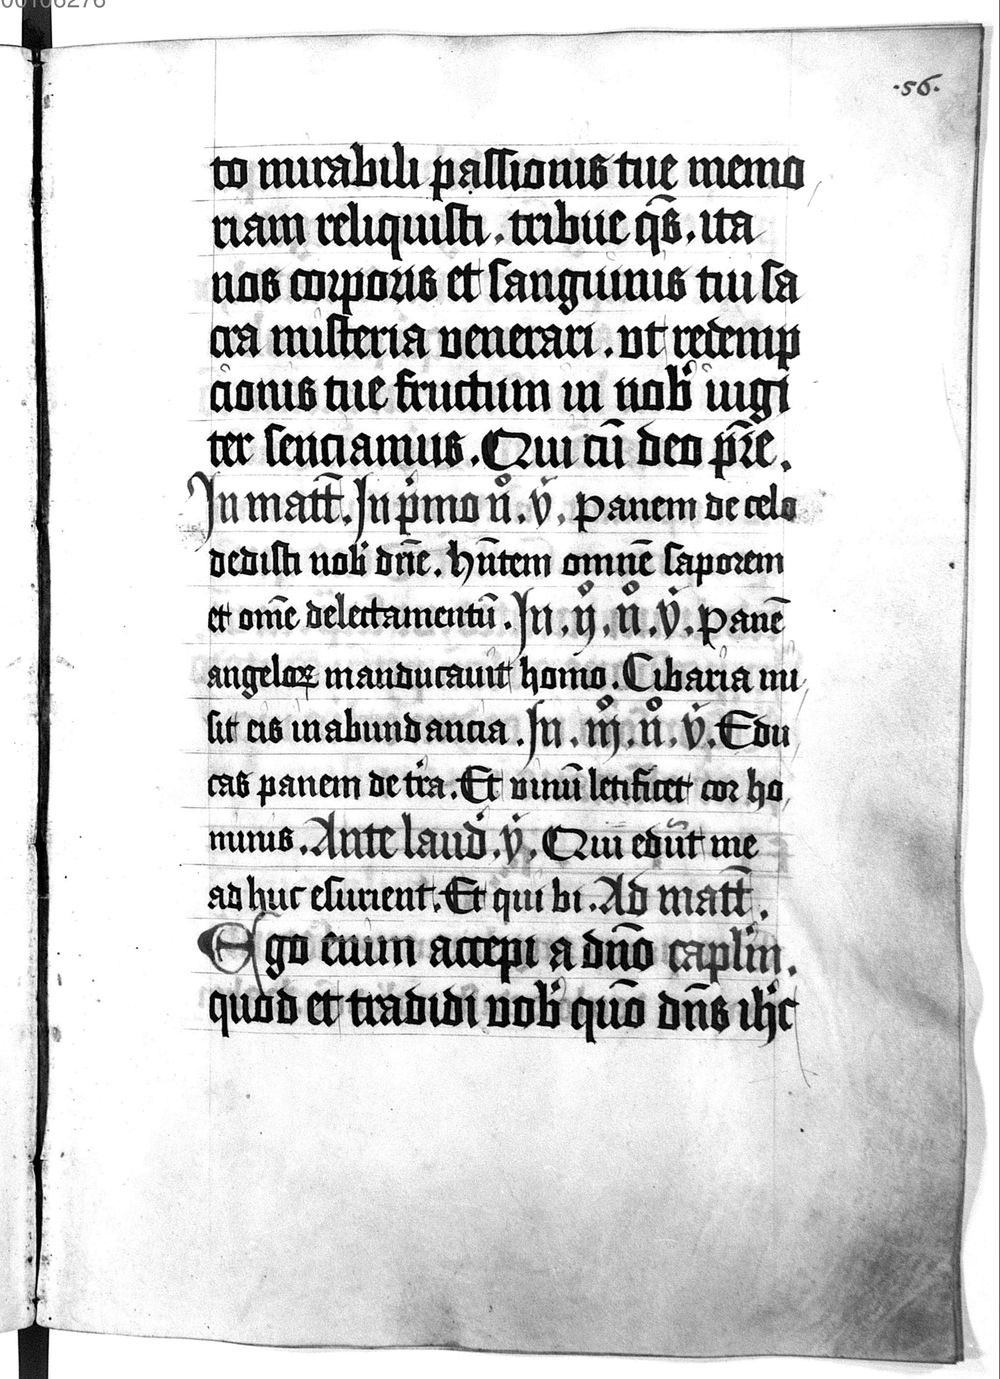 00106276
·56·
to mirabili passionis tue memo
riam reliquisti. tribue q̄s. ita
nos corporis et sanguinis tui sa
cra misteria venerari. vt redemp
cionis tue fructum in nob' iugi
ter senciamus. Qui cū deo p̄re.
In matt̄. In p'mo n̊. v̇. Panem de celo
dedisti nob' dn̄e. hn̄tem omnē saporem
et om̄e delectamentū. In. ij̊. n̊. v̇. Panē
angeloꝝ manducauit homo. Cibaria mi
sit eis in abundancia. In. iij̊. n̊. v̇. Edu
cas panem de t'ra. Et vinū letificet cor ho
minis. Ante laud'. v̇. Qui edūt me
ad huc esurient. Et qui bi. Ad matt̄.
Ego enim accepi a dn̄o cap'lm.
quod et tradidi vob' qūo dn̄s ihc̄